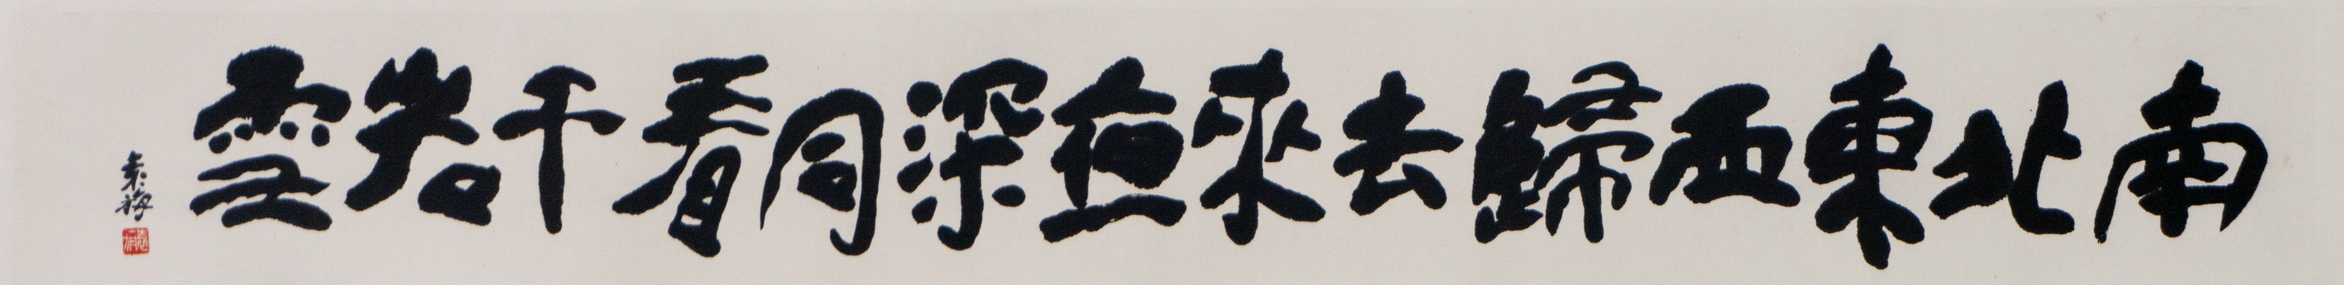 南北東西歸去來夜深同看千岩雪